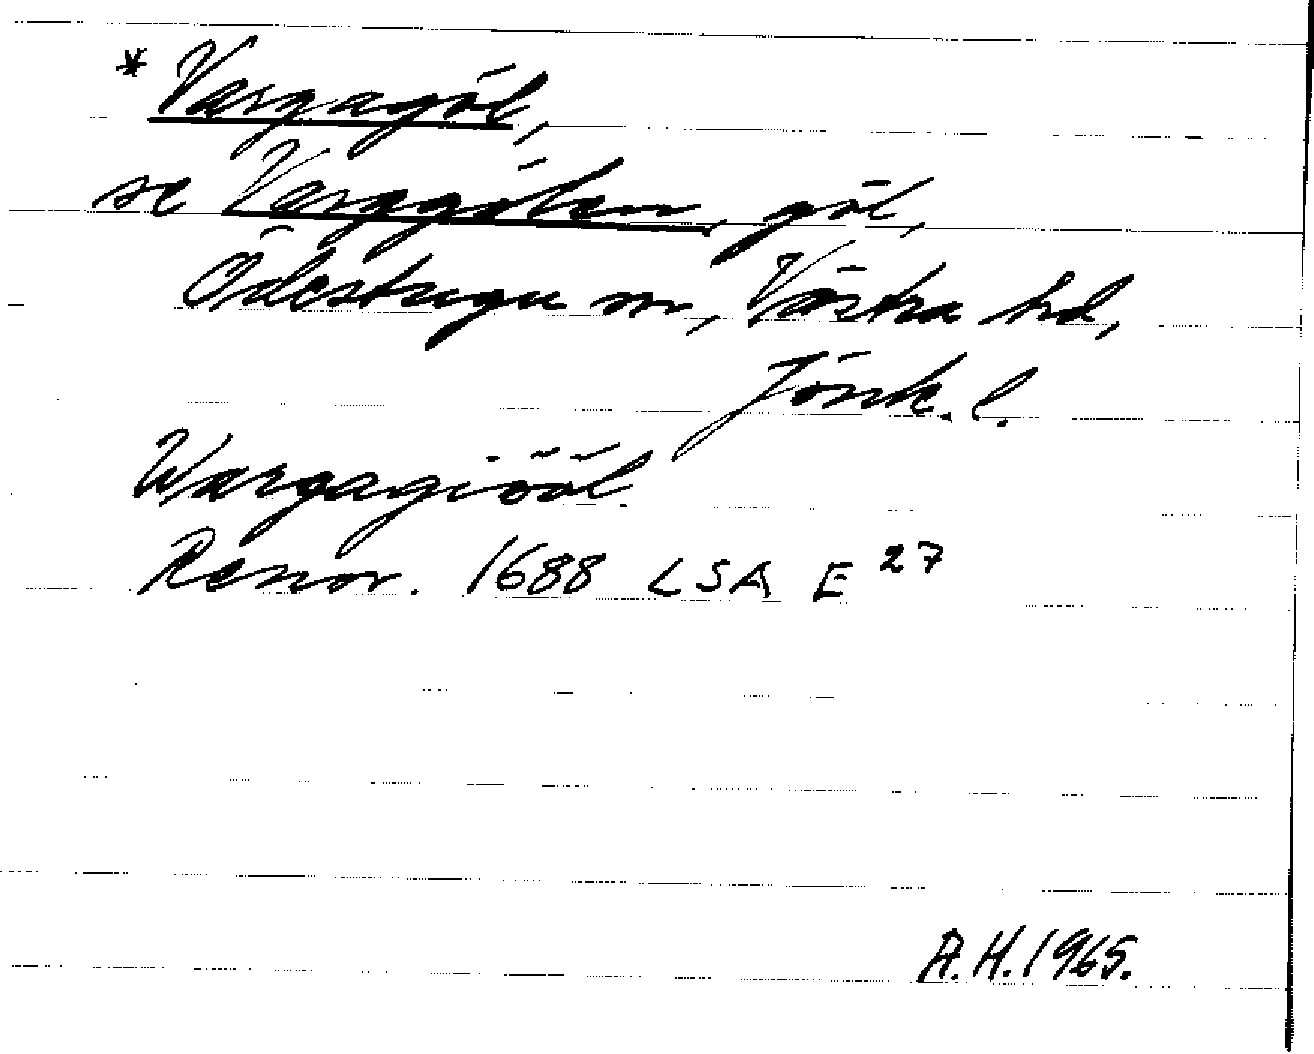 * Vargagöl,
se Varggölen, göl,
Ödestugu sn, Västra hd,
Jönk. l.
Wargagiööl
Renov. 1688 LSA E 27
A.H. 1965.